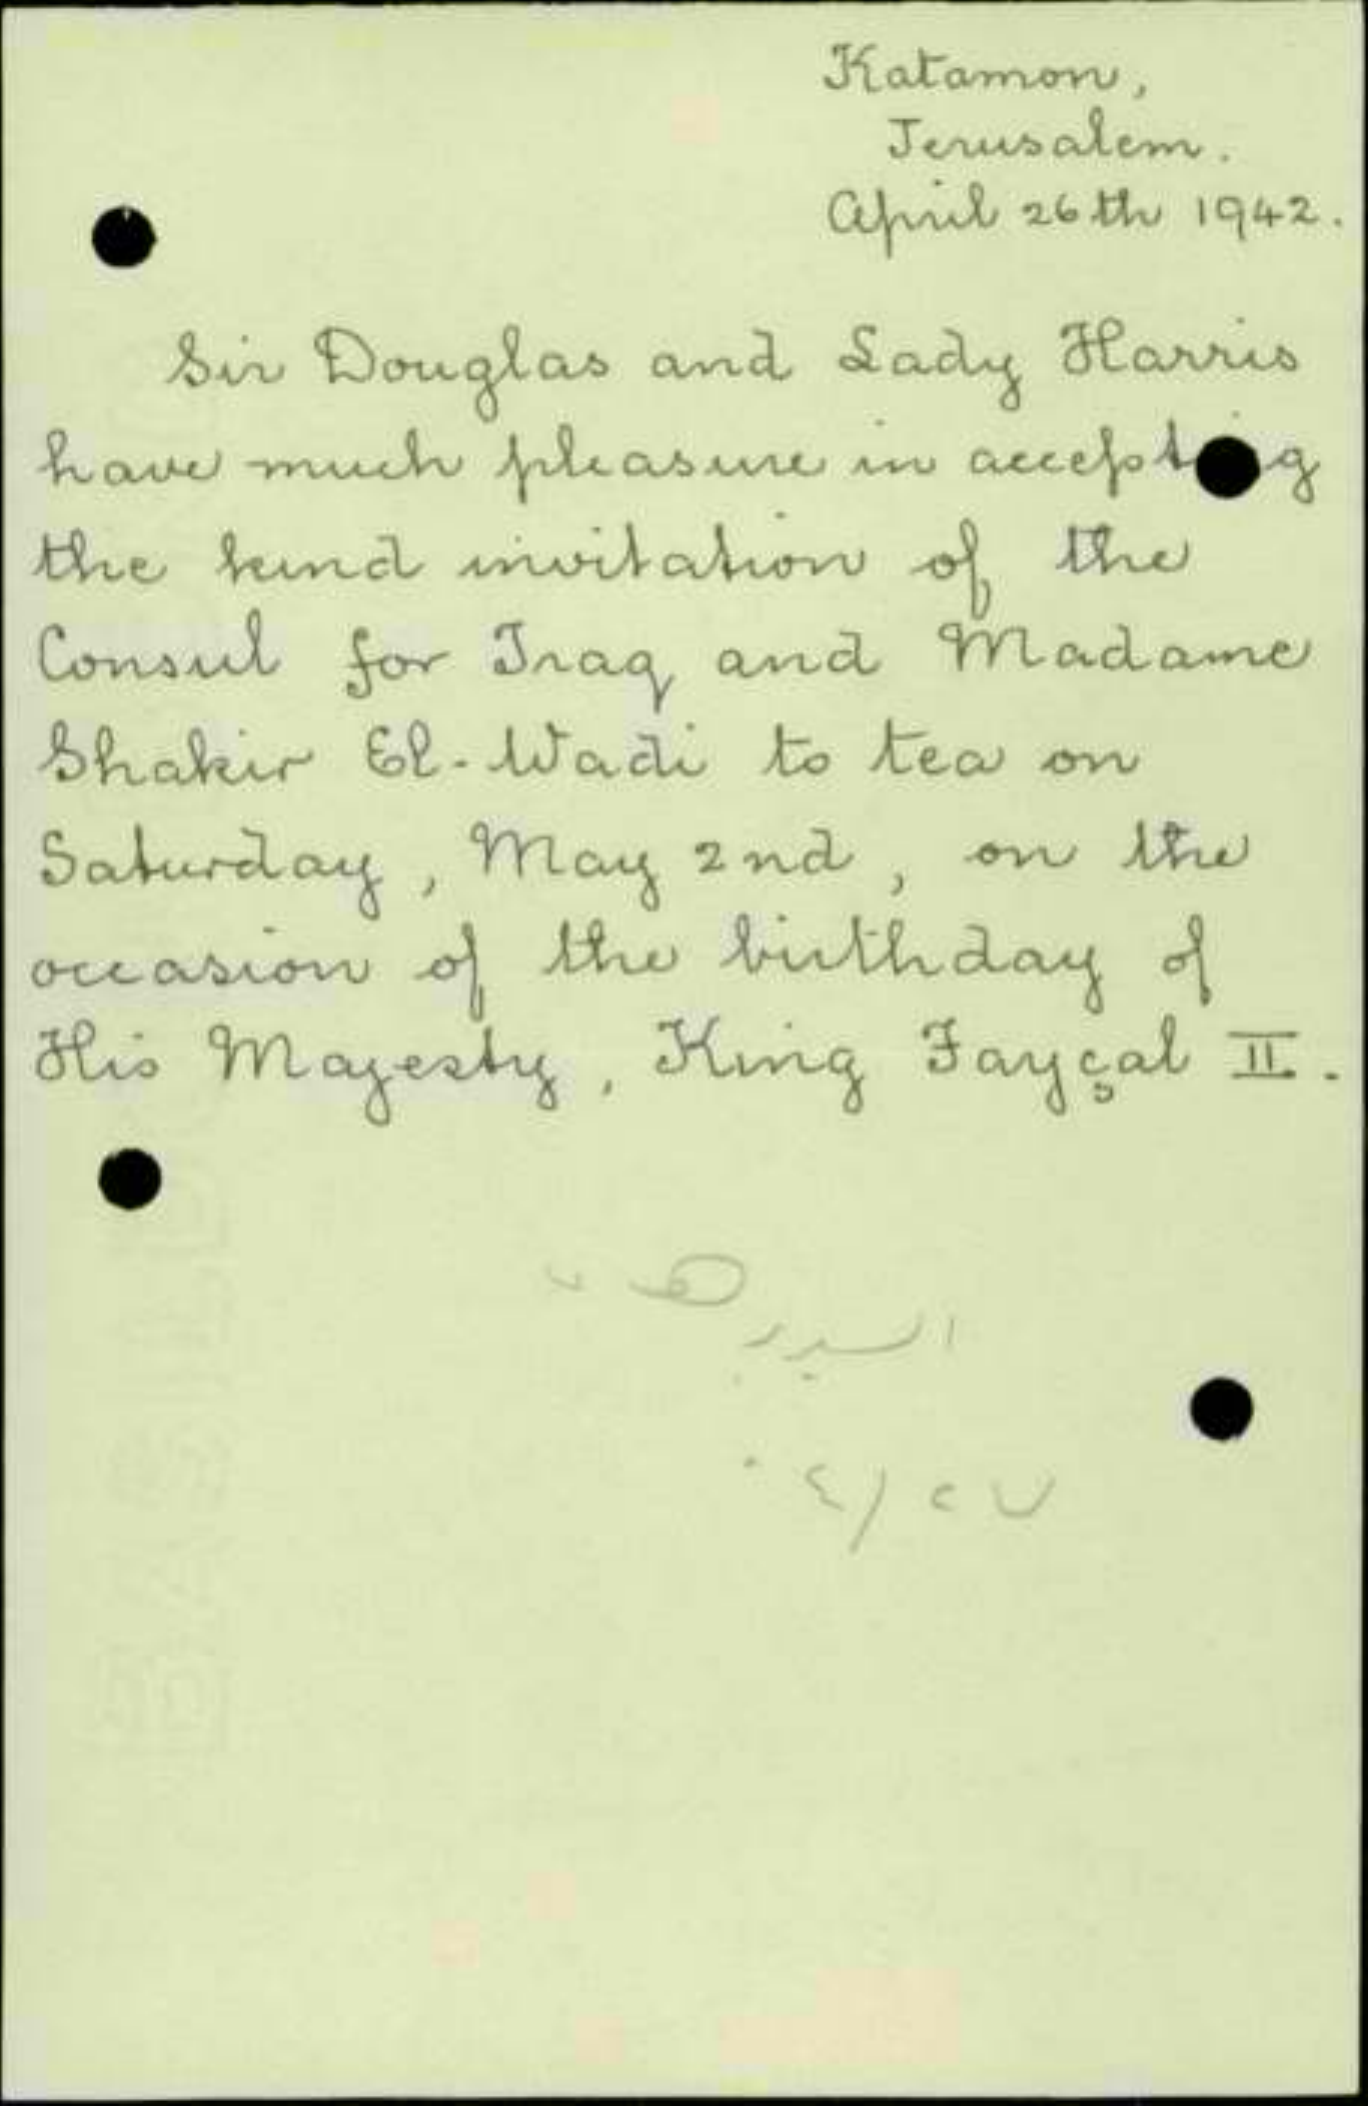 Katamon,
Jerusalem.
April 26th 1942.
Sir Douglas and Lady Harris
have much pleasure in accepting
the kind invitation of the
Consul for Iraq and Madame
Shakir El-Wadi to tea on
Saturday, May 2nd, on the
occasion of the birthday of
His Majesty, King Fayçal II.
٤/٢٧